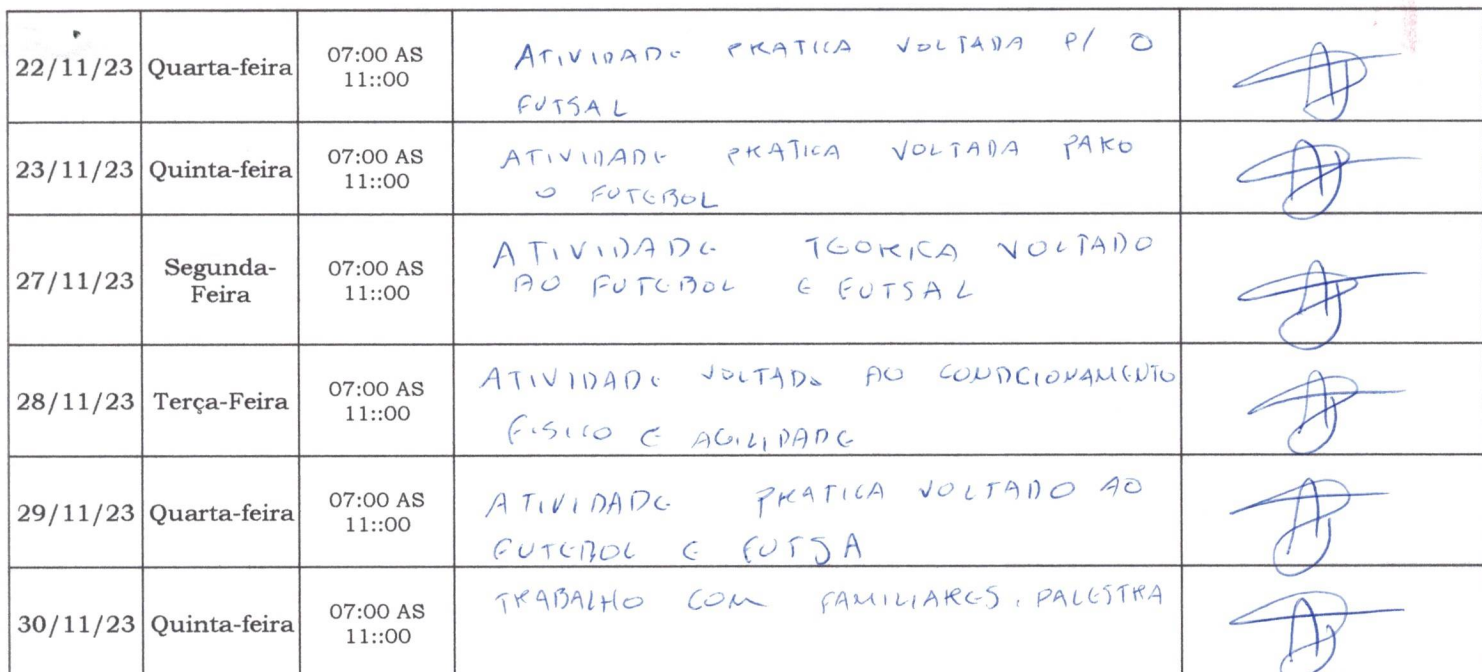 22/11/23 Quarta-feira 07:00 AS 11::00 ATIVIDADE PRATICA VOLTADA P/ O
FUTSAL
23/11/23 Quinta-feira 07:00 AS 11::00 ATIVIDADE PRATICA VOLTADA PARO
O FUTEBOL
27/11/23 Segunda-Feira 07:00 AS 11::00 ATIVIDADE TEORICA VOLTADO
AO FUTEBOL E FUTSAL
28/11/23 Terça-Feira 07:00 AS 11::00 ATIVIDADE VOLTADA AO CONDCIONAMENTO
FISICO E AGILIDADE
29/11/23 Quarta-feira 07:00 AS 11::00 ATIVIDADE PRATICA VOLTADO AO
FUTEBOL E FUTSA
30/11/23 Quinta-feira 07:00 AS 11::00 TRABALHO COM FAMILIARES, PALESTRA